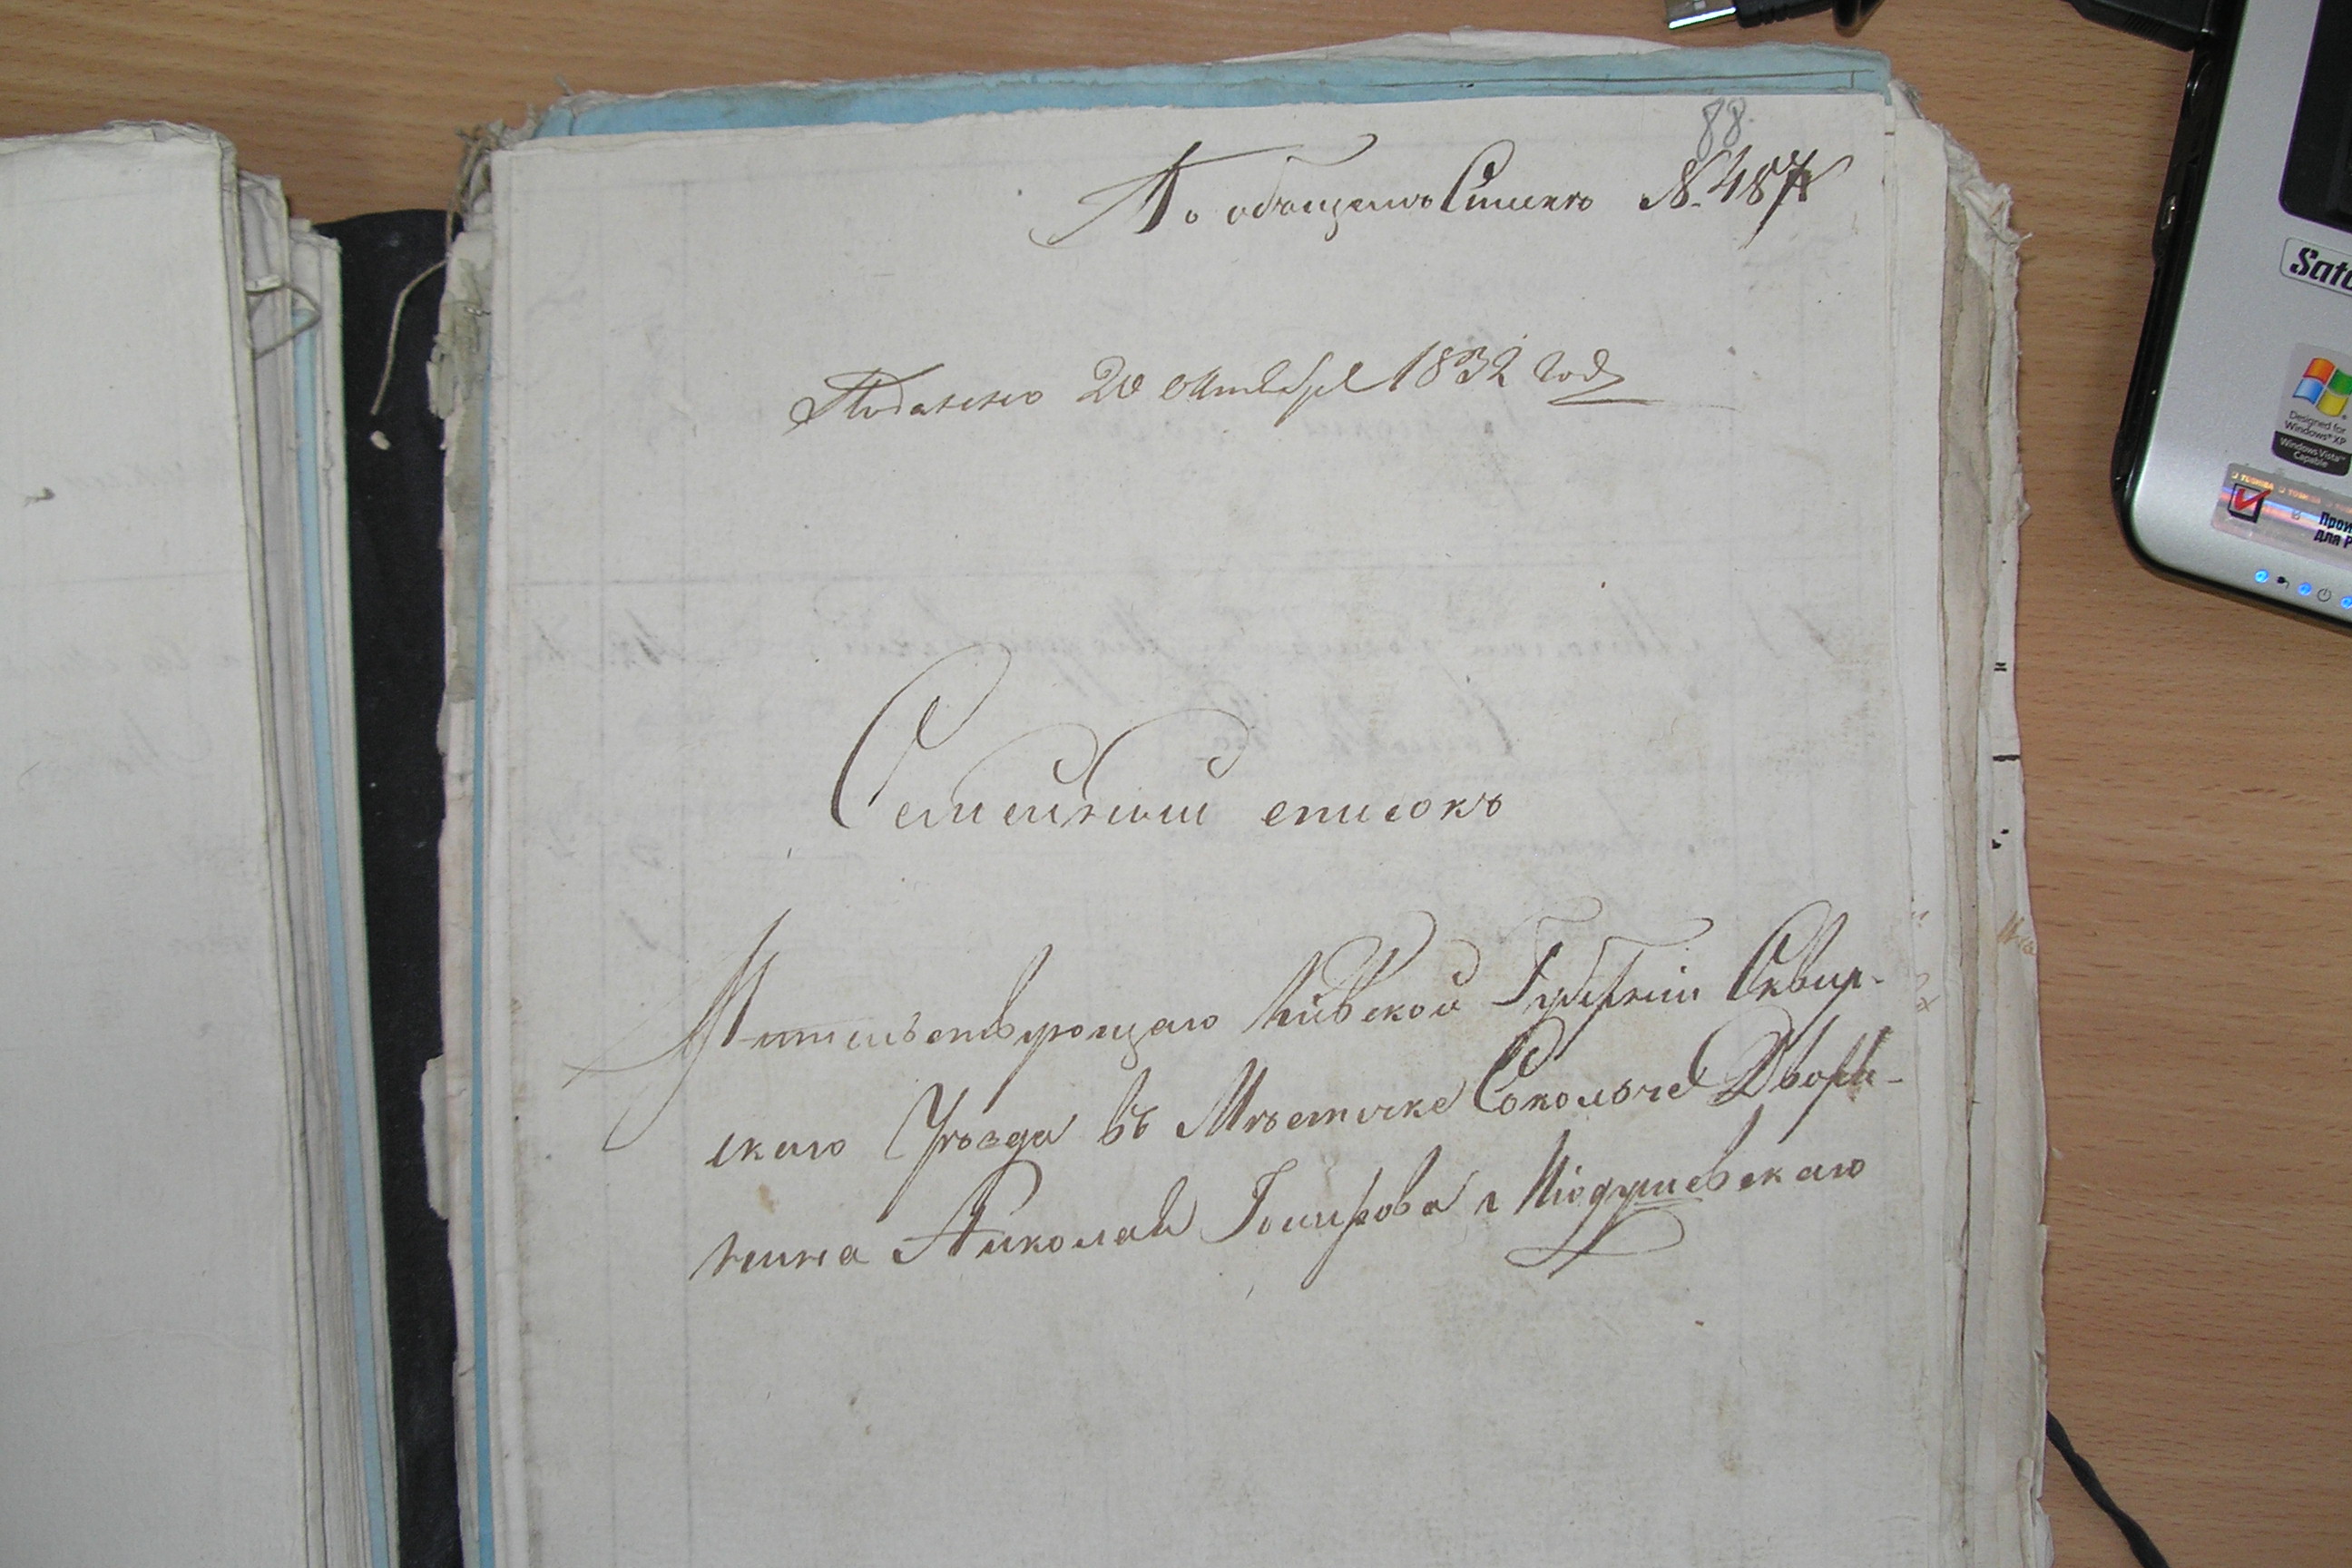 88.
По общему Списку №487
Поданно 20 октября 1832 года
Семейный списокъ
Жительствующаго Кіевской Губерніи Сквир-
скаго Уѣзда въ Мѣстечке Соколыче Дворя-
нина Николая
Sate
Designed for
Windows® XP
Windows Vista™
Capable
TOSHIBA
Прои
для Р